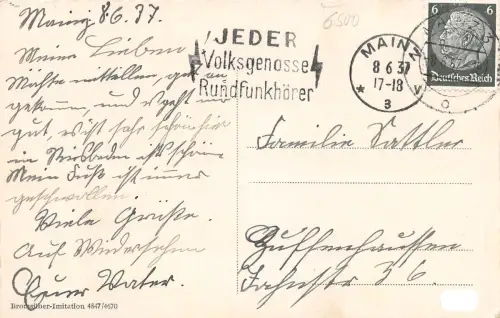 Mainz 8.6.37.
Meine Lieben
Möchte mitteilen, gut an-
gekommen, und es geht mir
gut, es ist sehr schön hier
in Wiesbaden ist es schön
Mein Fuß ist immer
geschwollen.
Viele Grüße.
Auf Wiedersehen
Euer Vater.
Bromsilber-Imitation 4847/4670
JEDER
Volksgenosse
Rundfunkhörer
6500
MAINZ
8 6 37
17-18
* 3
6 6
Deutsches Reich
Familie Sattler
Zuffenhausen
Bahnstr 56.